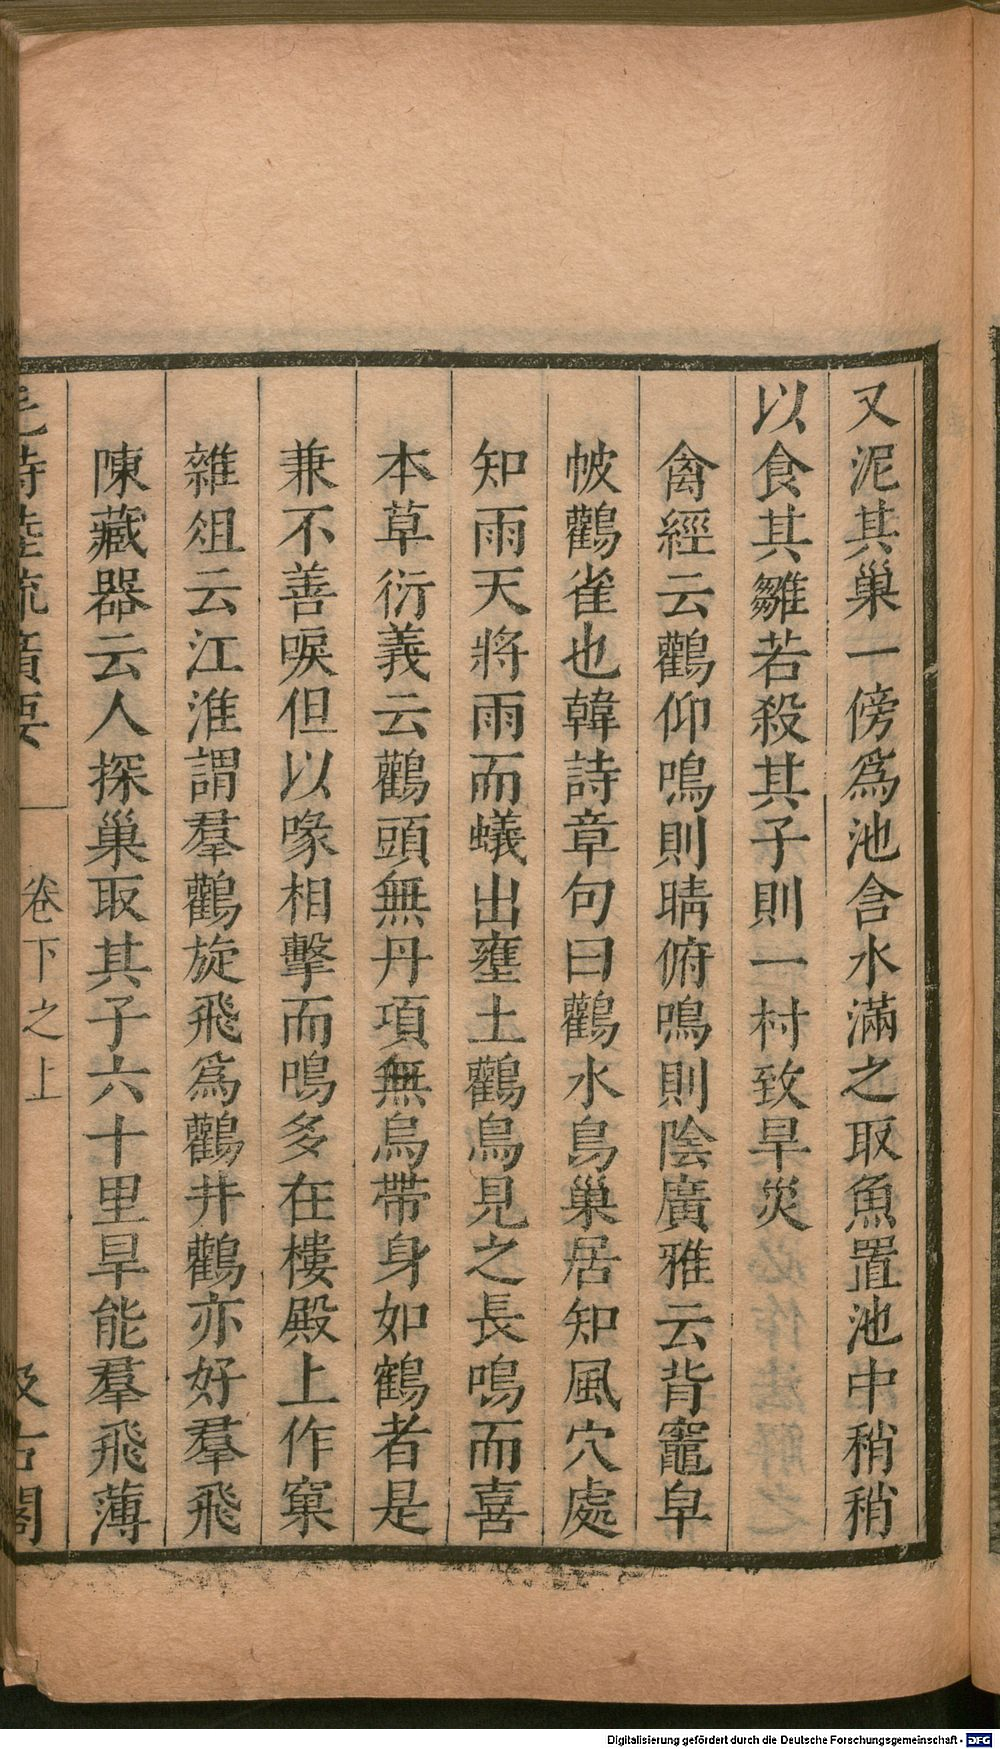 又泥其巢一傍爲池含水滿之取魚置池中稍稍
以食其雛若殺其子則一村致旱災
禽經云鸛仰鳴則晴俯鳴則陰廣雅云背竈皁
帔鸛雀也韓詩章句曰鸛水鳥巢居知風穴處
知雨天將雨而蟻出壅土鸛鳥見之長鳴而喜
本草衍義云鸛頭無丹項無烏帶身如鶴者是
兼不善唳但以喙相擊而鳴多在樓殿上作窠
雜俎云江淮謂羣鸛旋飛爲鸛井鸛亦好羣飛
陳藏器云人探巢取其子六十里旱能羣飛薄
毛詩陸疏廣要 卷下之上 汲古閣
Digitalisierung gefördert durch die Deutsche Forschungsgemeinschaft - DFG